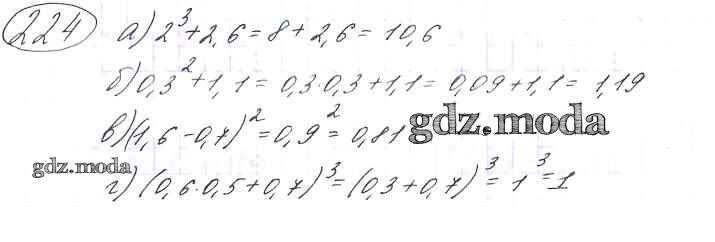 224 а) 2³+2,6=8+2,6=10,6
б) 0,3²+1,1=0,3·0,3+1,1=0,09+1,1=1,19
в) (1,6-0,7)²=0,9²=0,81 gdz.moda
gdz.moda
г) (0,6·0,5+0,7)³=(0,3+0,7)³=1³=1